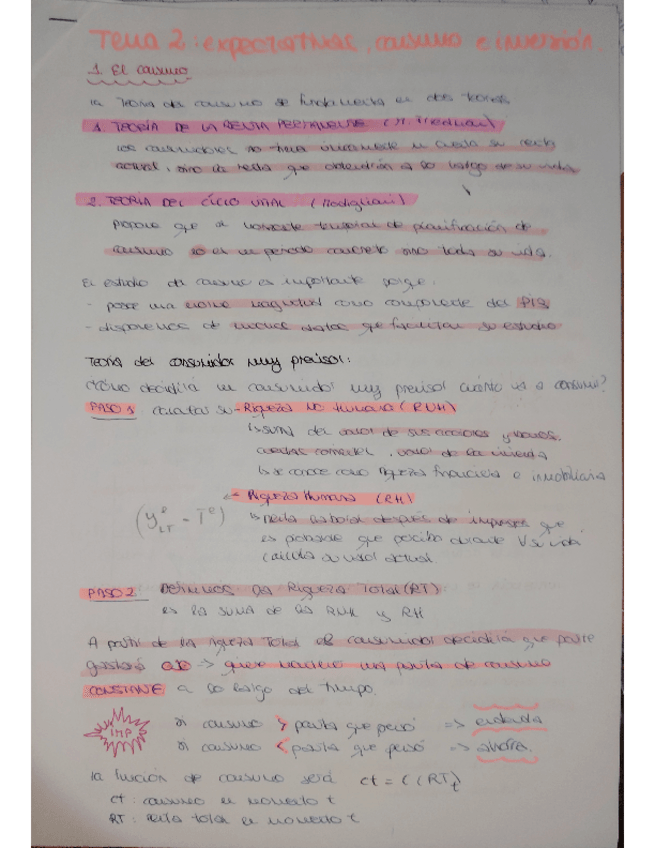 Tema 2: expectativas, consumo e inversión.
1. El consumo
la Teoría del consumo se fundamenta en dos teorías
1. TEORÍA DE LA RENTA PERMANENTE (M. Friedman)
los consumidores no tienen únicamente en cuenta su renta
actual, sino la renta que obtendrán a lo largo de su vida
2. TEORIA DEL CICLO VITAL (Modigliani)
Propone que el horizonte temporal de planificación de
consumo no es un periodo concreto sino toda su vida.
El estudio del consumo es importante porque:
- posee una enorme magnitud como componente del PIB
- disponemos de muchos datos que facilitan su estudio
Teoría del consumidor muy previsor:
¿Cómo decidirá un consumidor muy previsor cuánto va a consumir?
PASO 1: calcular su - Riqueza No Humana (RNH)
↳ suma del valor de sus acciones y bonos,
cuentas corrientes, valor de la vivienda
↳ se conoce como riqueza financiera e inmobiliaria
- Riqueza Humana (RH)
(Y^e_LT - T^e) ↳ Renta laboral después de impuestos que
es probable que perciba durante su vida
calcula su valor actual
PASO 2: Definimos la Riqueza Total (RT)
es la suma de la RNH y RH
A partir de la riqueza total el consumidor decidirá que parte
gastará -> quiere mantener una pauta de consumo
CONSTANTE a lo largo del tiempo.
IMP
si consumo > pauta que pensó => endeuda
si consumo < pauta que pensó => ahorra.
la función de consumo será Ct = C(RTt)
Ct: consumo en momento t
RT: renta total en momento t